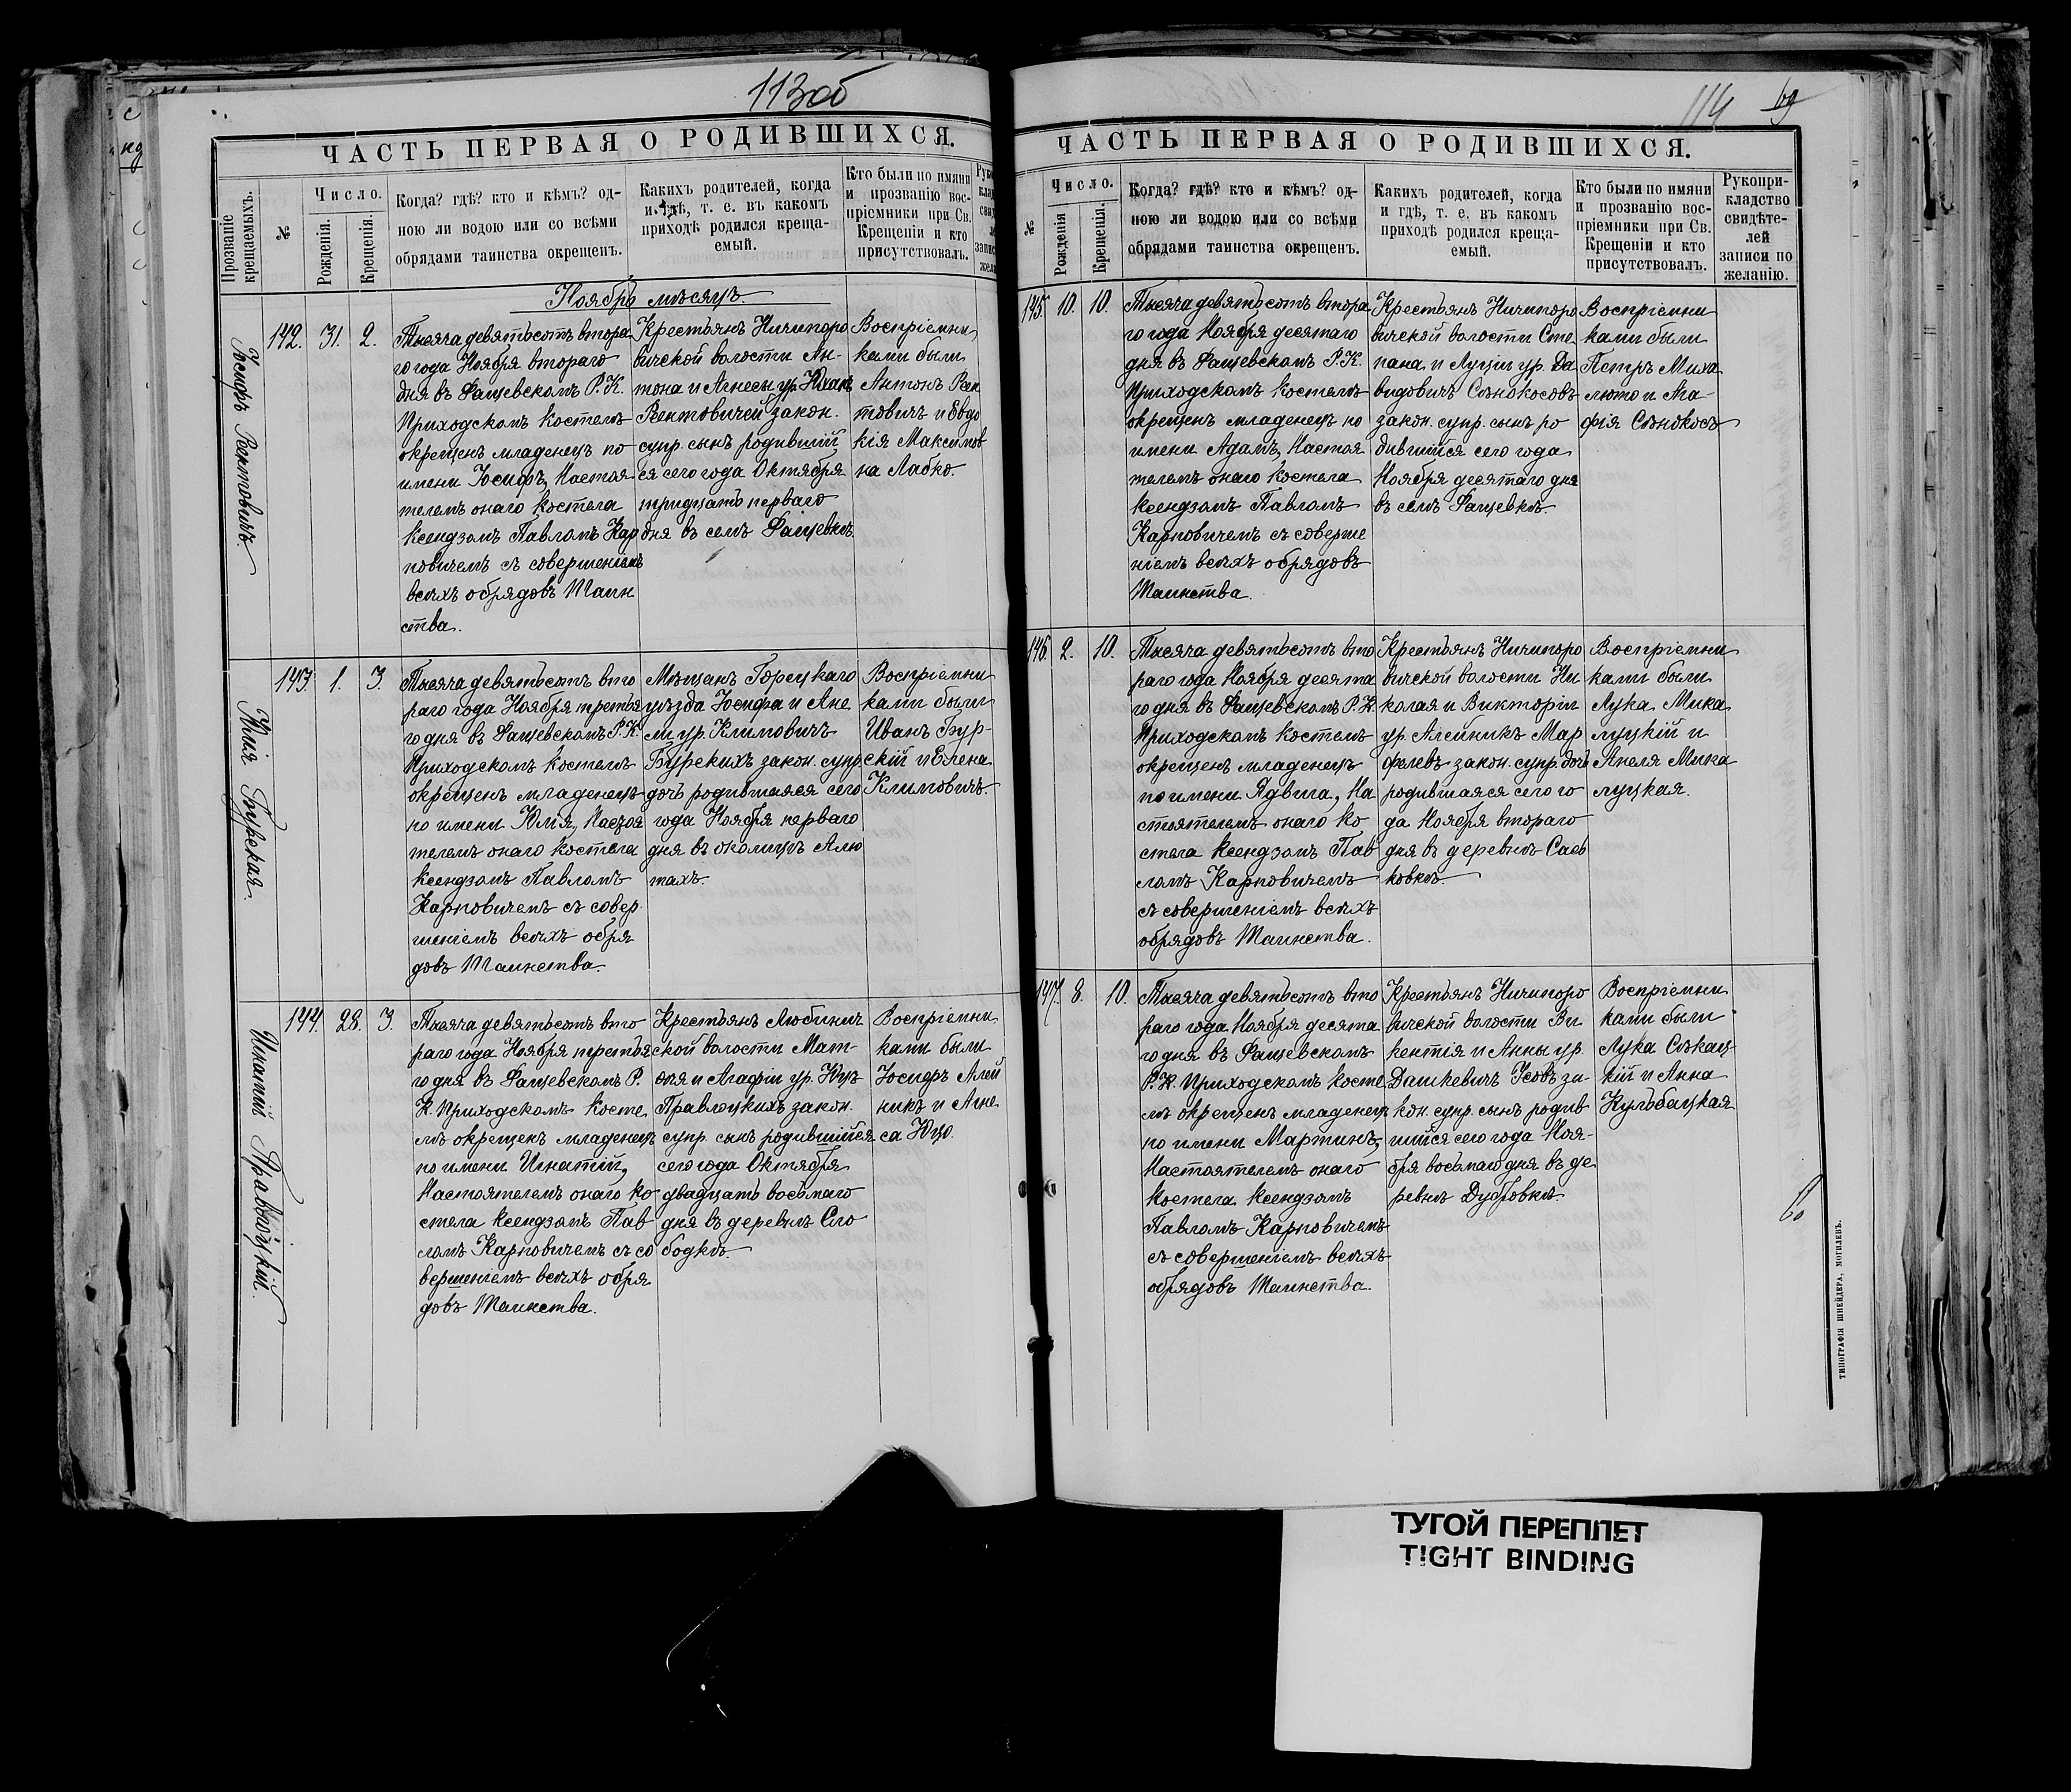 113об
ЧАСТЬ ПЕРВАЯ О РОДИВШИХСЯ.
Прозваніе крещаемыхъ.
№
Число.
Рожденія.
Крещенія.
Когда? гдѣ? кто и кѣмъ? од-
ною ли водою или со всѣми
обрядами таинства окрещенъ.
Какихъ родителей, когда
и гдѣ, т. е. въ какомъ
приходѣ родился креща-
емый.
Кто были по имяни
и прозванію вос-
пріемники при Св.
Крещеніи и кто
присутствовалъ.
Ноябрь мѣсяцъ.
Іосифъ Рентовичъ.
142. 31. 2.
Тысяча девятьсотъ втора
го года Ноября втораго
дня въ Фащевскомъ Р. К.
Приходскомъ костелѣ
окрещенъ младенецъ по
имени Іосифъ, Настоя
телемъ онаго костела
Ксендзомъ Павломъ Кар
повичемъ съ совершеніемъ
всѣхъ обрядовъ Таин
ства.
Крестьянъ Ничипоро
вичской волости Ан-
тона и Агнесы ур.
Рентовичей закон.
супр. сынъ родившій
ся сего года Октября
тридцать перваго
дня въ селѣ Фащевкѣ.
Воспріемни
ками были
Антонъ Рен
товичъ и Евдо
кія Максимов
на Лабко.
Юлія Бурская.
143. 1. 3.
Тысяча девятьсотъ вто
раго года Ноября третья
го дня въ Фащевскомъ Р. К.
Приходскомъ костелѣ
окрещенъ младенецъ
по имени Юлія, Настоя
телемъ онаго костела
Ксендзомъ Павломъ
Карповичемъ съ совер
шеніемъ всѣхъ обря
довъ Таинства.
Мѣщанъ Горецкаго
уѣзда Іосифа и Ане
ли ур. Климовичъ
Бурскихъ закон. супр
дочь родившаяся сего
года Ноября перваго
дня въ околицѣ Алю
тахъ.
Воспріемни
ками были
Иванъ Бур-
скій и Елена
Климовичъ.
Игнатій Правлоцкій.
144. 28. 3.
Тысяча девятьсотъ вто
раго года Ноября третья
го дня въ Фащевскомъ Р.
К. Приходскомъ косте
лѣ окрещенъ младенецъ
по имени Игнатій,
Настоятелемъ онаго ко
стела Ксендзомъ Пав
ломъ Карповичемъ съ со
вершеніемъ всѣхъ обря
довъ Таинства.
Крестьянъ Любинич
ской волости Мат-
ѳея и Агафіи ур.
Правлоцкихъ закон.
супр. сынъ родившійся
сего года Октября
двадцать восьмаго
дня въ деревнѣ Сло
бодкѣ.
Воспріемни
ками были
Іосифъ Алей
никъ и Агне
са Юцо.
114
69
ЧАСТЬ ПЕРВАЯ О РОДИВШИХСЯ.
№
Число.
Рожденія
Крещенія.
Когда? гдѣ? кто и кѣмъ? од-
ною ли водою или со всѣми
обрядами таинства окрещенъ.
Какихъ родителей, когда
и гдѣ, т. е. въ какомъ
приходѣ родился креща-
емый.
Кто были по имяни
и прозванію вос-
пріемники при Св.
Крещеніи и кто
присутствовалъ.
Рукопри-
кладство
свидѣте-
лей
записи по
желанію.
145. 10. 10.
Тысяча девятьсотъ втора
го года Ноября десятаго
дня въ Фащевскомъ Р. К.
Приходскомъ костелѣ
окрещенъ младенецъ по
имени Адамъ, Настоя
телемъ онаго костела
Ксендзомъ Павломъ
Карповичемъ съ соверше
ніемъ всѣхъ обрядовъ
Таинства.
Крестьянъ Ничипоро
вичской волости Сте
пана и Луціи ур. Да
видовичъ Сѣнокосовъ
закон. супр. сынъ ро
дившійся сего года
Ноября десятаго дня
въ селѣ Фащевкѣ
Воспріемни
ками были
Петръ Миха
люто и Ма-
фія Сѣнокосъ
146. 2. 10.
Тысяча девятьсотъ вто
раго года Ноября десята
го дня въ Фащевскомъ Р. К.
Приходскомъ костелѣ
окрещенъ младенецъ
по имени Ядвига, На
стоятелемъ онаго ко
стела Ксендзомъ Пав
ломъ Карповичемъ
съ совершеніемъ всѣхъ
обрядовъ Таинства.
Крестьянъ Ничипоро
вичской волости Ни
колая и Викторіи
ур. Алейникъ Мар
фелевъ закон. супр. дочь
родившаяся сего го
да Ноября втораго
дня въ деревнѣ Сась
ковкѣ.
Воспріемни
ками были
Лука Мика
луцкій и
Анеля Мика
луцкая.
147. 8. 10.
Тысяча девятьсотъ вто
раго года Ноября десята
го дня въ Фащевскомъ
Р. К. Приходскомъ косте
лѣ окрещенъ младенецъ
по имени Мартинъ,
Настоятелемъ онаго
костела Ксендзомъ
Павломъ Карповичемъ
съ совершеніемъ всѣхъ
обрядовъ Таинства
Крестьянъ Ничипоро
вичской волости Ви
кентія и Анны ур.
Дашкевичъ Усовъ за-
кон. супр. сынъ родив
шійся сего года Ноя-
бря восьмаго дня въ де
ревнѣ Дубровкѣ.
Воспріемни
ками были
Лука Сѣкац
кій и Анна
Кульбацкая
ТИПОГРАФІЯ ШНЕЙДЕРА, МОГИЛЕВЪ.
ТУГОЙ ПЕРЕПЛЕТ
TIGHT BINDING